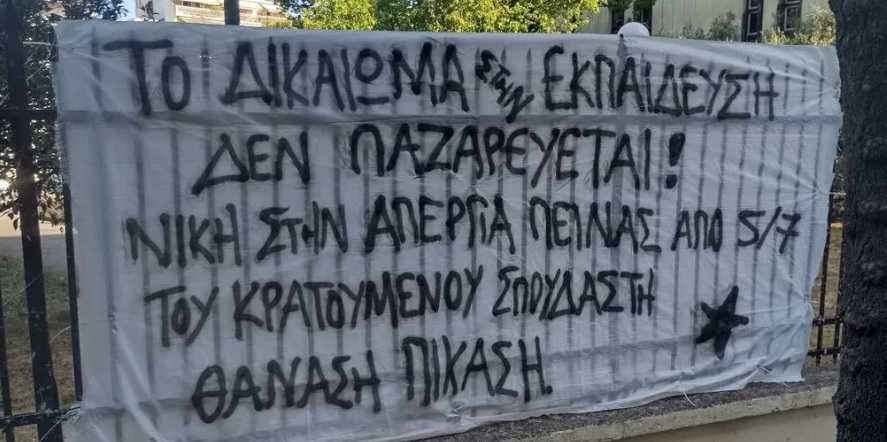 ΤΟ ΔΙΚΑΙΩΜΑ ΣΤΗΝ ΕΚΠΑΙΔΕΥΣΗ
ΔΕΝ ΠΑΖΑΡΕΥΕΤΑΙ!
ΝΙΚΗ ΣΤΗΝ ΑΠΕΡΓΙΑ ΠΕΙΝΑΣ ΑΠΟ 5/7
ΤΟΥ ΚΡΑΤΟΥΜΕΝΟΥ ΣΠΟΥΔΑΣΤΗ
ΘΑΝΑΣΗ ΠΙΚΑΣΗ.